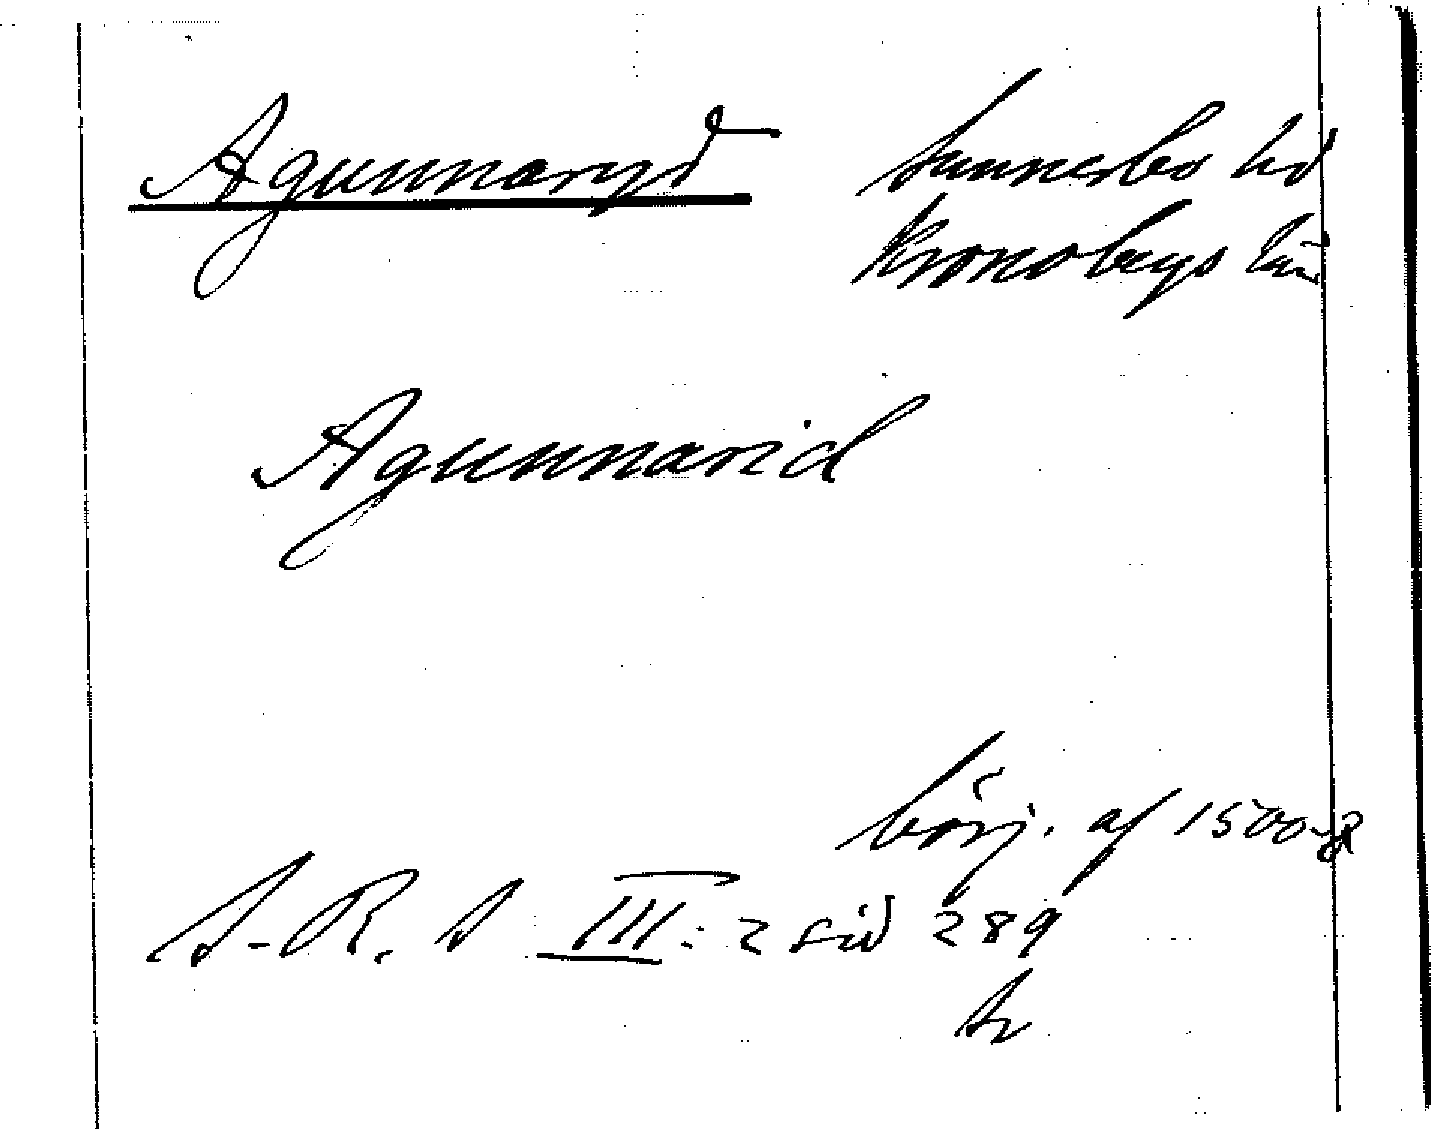 Agunnaryd Sunnerbo hd
Kronobergs län
Agunnarid
börj. af 1500-t
S-R. S III: 2 sid 289
tr